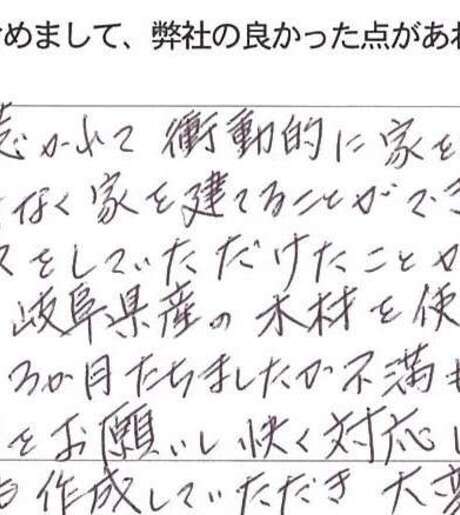 めまして、弊社の良かった点があれ
かれて 衝動的に家を
なく家を建てることができ
をしていただけたことが
岐阜県産の木材を使
3か月たちましたが不満も
をお願いし快く対応し
作成していただき 大変